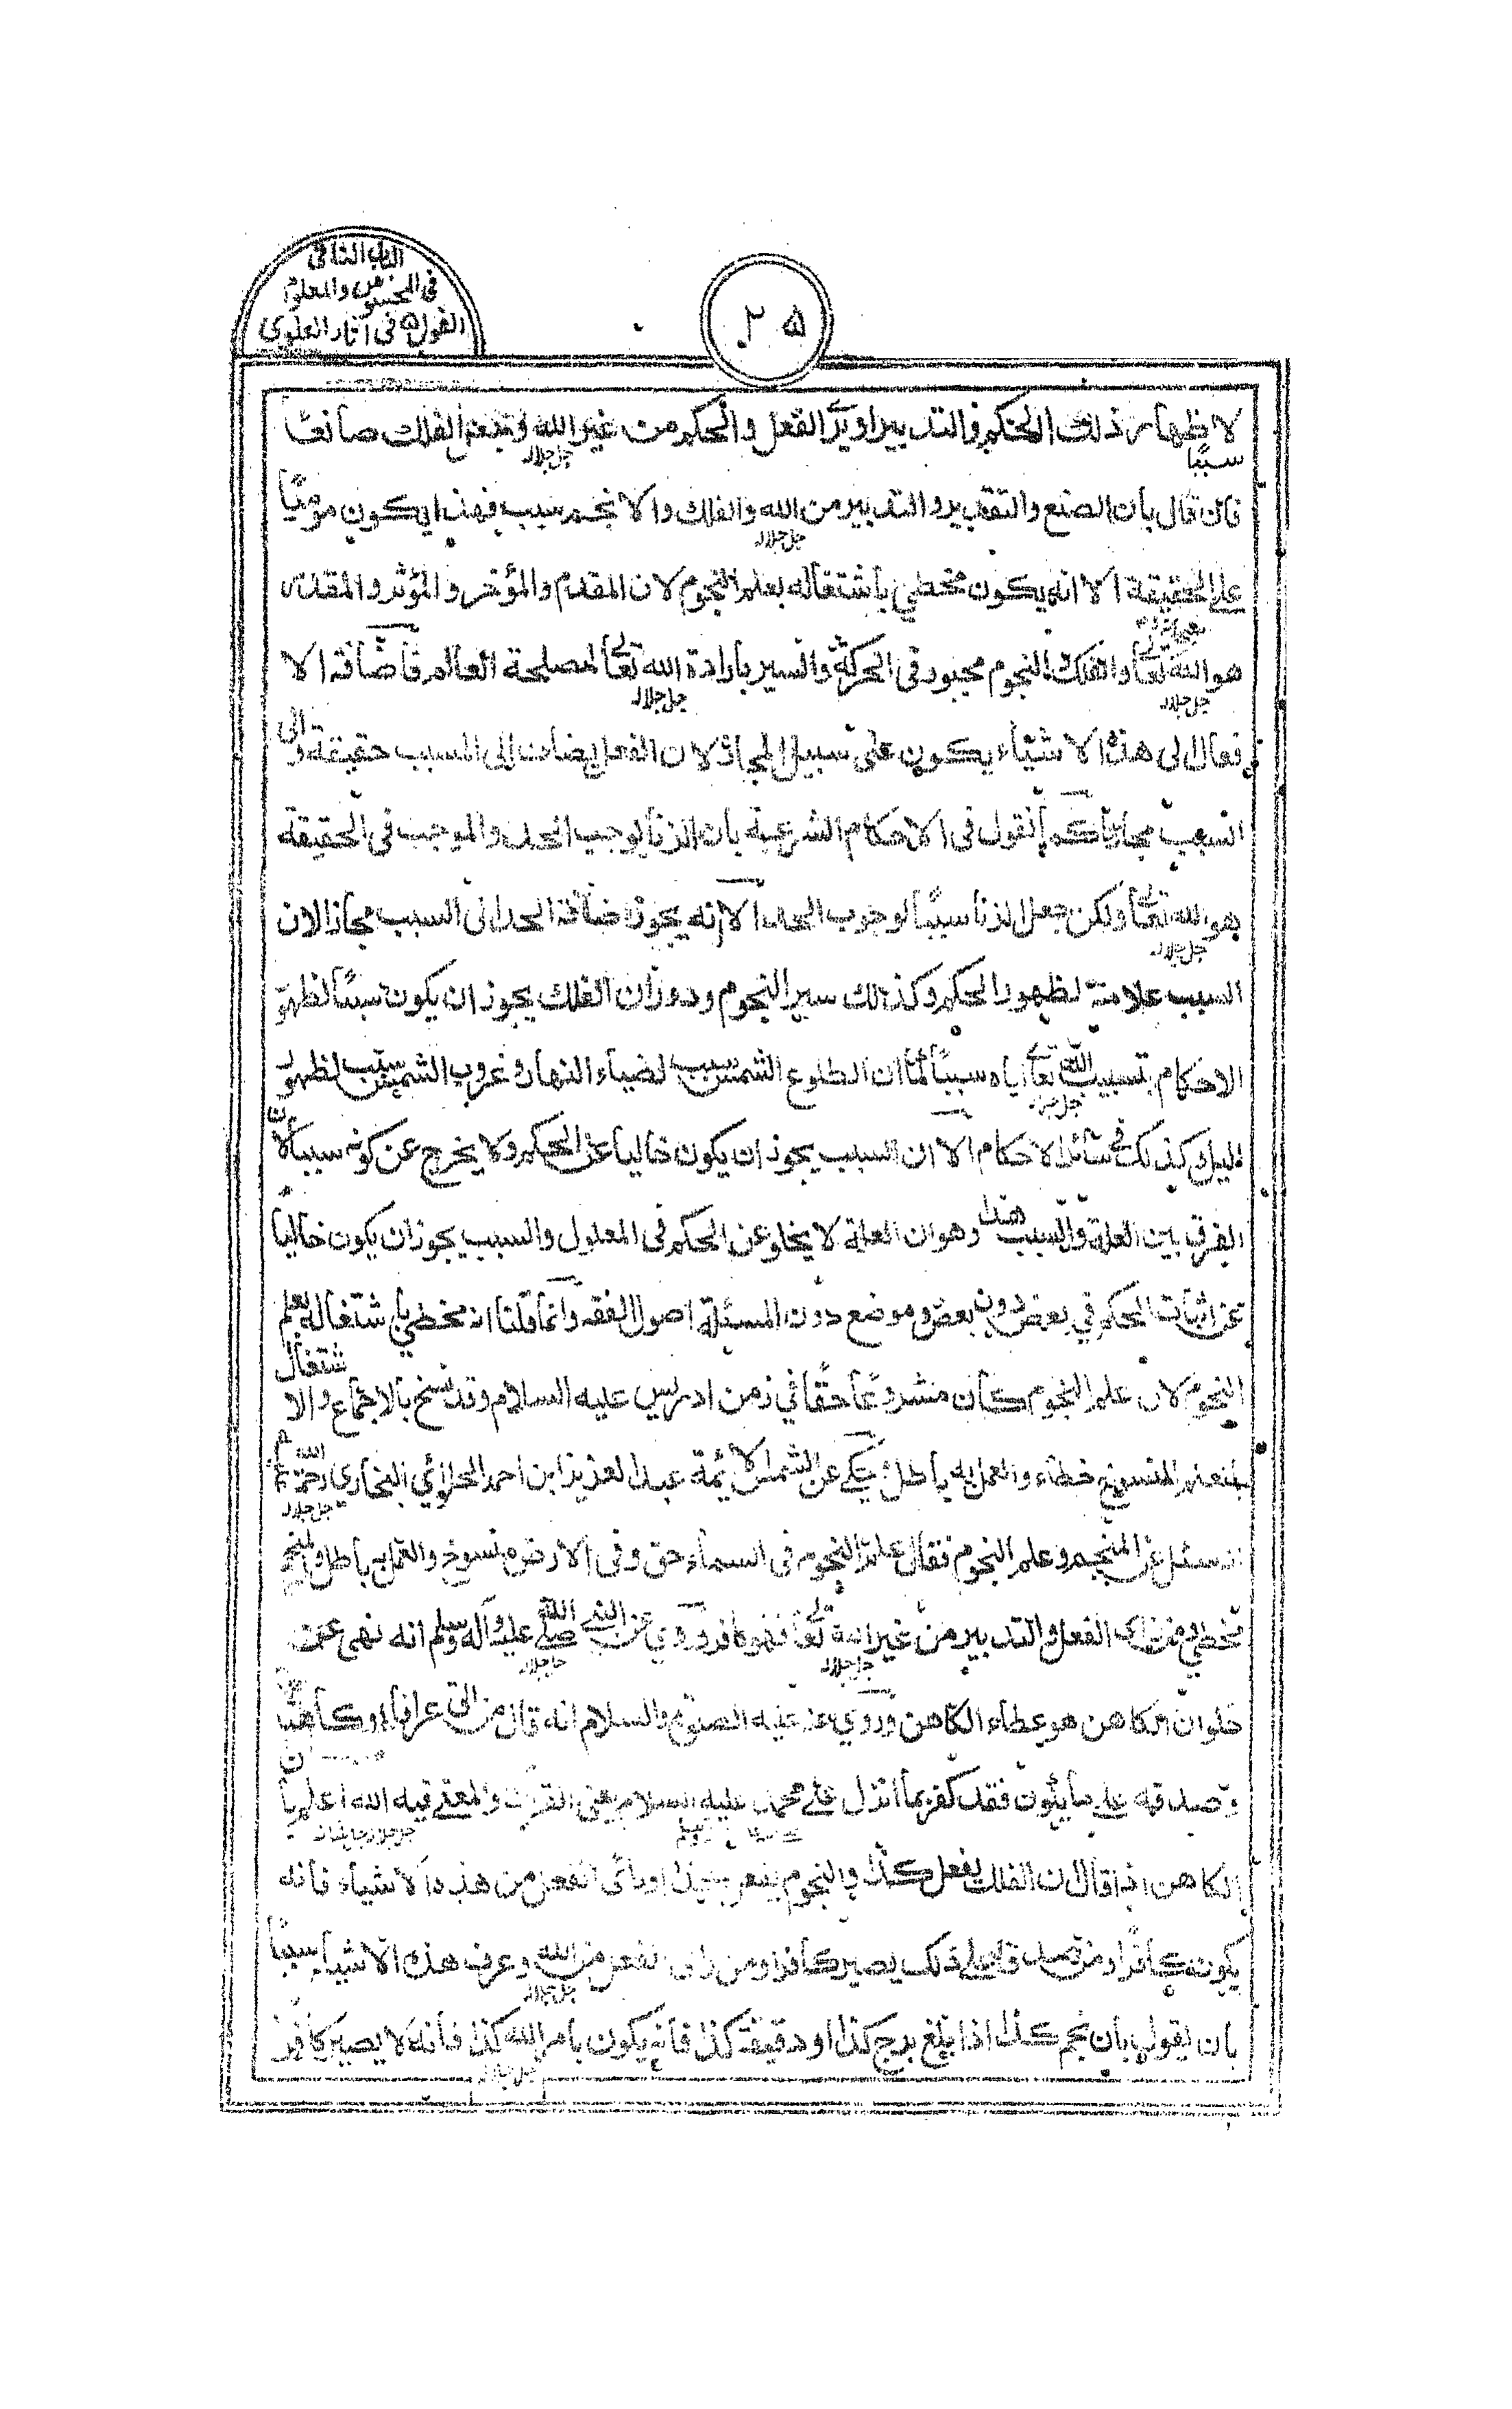 الباب الثاني
في المحسوس والمعلوم
القول ۵ في آثار العلوي
۲۵
لاظهار ذلك الحكم والتدبير او يرى الفعل والحكم من غير الله ويجعل الفلك صانعًا
جل جلاله
سببًا
فان قال بان الصنع والتقدير والتدبير من الله والفلك والانجم سبب فهذا يكون مومنًا
جل جلاله
على الحقيقة الا انه يكون مخطي باشتغاله بعلم النجوم لان المقدم والمؤخر والمؤثر والمقدر
هو الله تعالى والفلك والنجوم مجبور في الحركة والسير بارادة الله تعالى لمصلحة العالم فاضافة الا
جل جلاله جل جلاله
فعال الى هذه الاشياء يكون على سبيل المجاز لان الفعل يضاف الى المسبب حقيقة والى
السبب مجازا كما نقول في الاحكام الشرعية بان الزنا يوجب الحد والموجب في الحقيقة
هو الله تعالى ولكن جعل الزنا سببًا لوجوب الحد الا انه يجوز اضافة الحد الى السبب مجازا لان
جل جلاله
السبب علامة لظهور الحكم وكذلك سير النجوم ودوران الفلك يجوز ان يكون سببًا لظهو
الاحكام بتسبيب الله تعالى اياه سببًا كما ان الطلوع الشمس سبب لضياء النهار وغروب الشمس سبب لظهور
جل جلاله
الليل وكذلك في سائر الاحكام الا ان السبب يجوز ان يكون خاليا عن الحكم ولا يخرج عن كونه سببا لان
الفرق بين العلة والسبب هذا وهو ان العلة لا يخلو عن الحكم في المعلول والسبب يجوز ان يكون خاليا
عن اثبات الحكم في بعض دون بعض وموضع دون المسئلة اصول الفقه وانما قلنا انه مخطي باشتغاله بعلم
النجوم لان علم النجوم كان مشروعًا حقًا في زمن ادريس عليه السلام وقد نسخ بالاجماع والاشتغال
بتعلم المنسوخ خطاء والعمل به باطل يحكي عن الشمس الائمة عبد العزيز ابن احمد الحلوائي البخاري رحمه الله
جل جلاله
انه سئل عن المنجم وعلم النجوم فقال علم النجوم في السماء حق وفي الارض منسوخ والعمل به باطل والمنجم
مخطي ومن راى الفعل والتدبير من غير الله تعالى فهو كافر وروي عن النبي صلى الله عليه وآله وسلم انه نهى عن
جل جلاله جل جلاله
حلوان الكاهن هو عطاء الكاهن وروي عنه عليه الصلوة والسلام انه قال من اتى عرافا او كاهنًا
وصدقه على ما يقول فقد كفر بما انزل على محمد عليه السلام يعني القرآن والمعنى فيه الله اعلم بان
الكاهن اذا قال ان الفلك يفعل كذا والنجوم يفعل كذا او راى الفعل من هذه الاشياء فانه
يكون كافرًا ومن صدقه على ذلك يصير كافرا ومن راى الفعل من الله وعرف هذه الاشياء سببًا
جل جلاله
بان يقول بان نجم كذا اذا بلغ برج كذا او دقيقة كذا فانه يكون بامر الله كذا فانه لا يصير كافرًا
جل جلاله